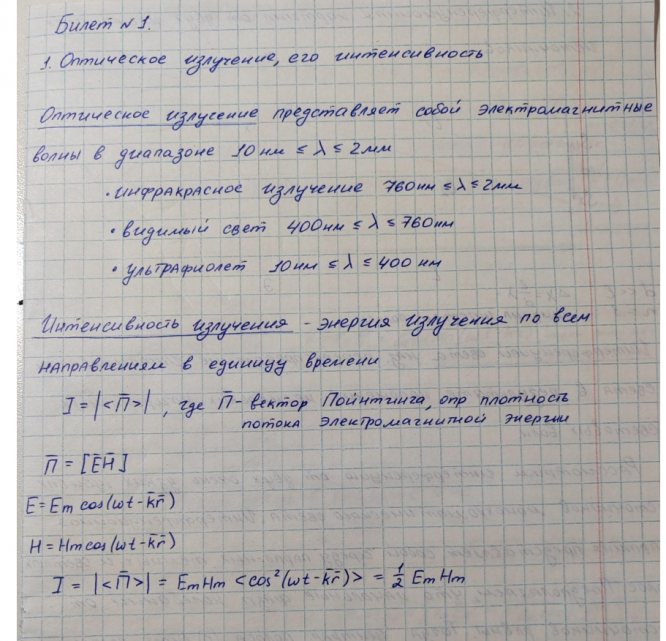 Билет №1.
1. Оптическое излучение, его интенсивность
Оптическое излучение представляет собой электромагнитные
волны в диапазоне 10 нм ≤ λ ≤ 2мм
• инфракрасное излучение 760нм ≤ λ ≤ 2мм
• видимый свет 400нм ≤ λ ≤ 760нм
• ультрафиолет 10нм ≤ λ ≤ 400 нм
Интенсивность излучения - энергия излучения по всем
направлениям в единицу времени
I = |<П̄>|, где П̄ - вектор Пойнтинга, опр плотность
потока электромагнитной энергии
П̄ = [ĒH̄]
E = Em cos(ωt - k̄r̄)
H = Hm cos(ωt - k̄r̄)
I = |<П̄>| = EmHm <cos²(ωt - k̄r̄)> = 1/2 EmHm